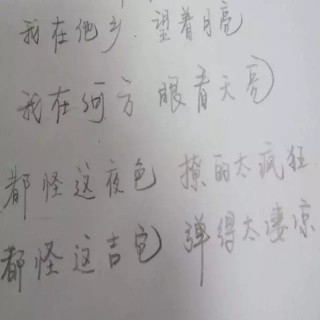 我在他乡.望着月亮
我在何方 眼看天亮
都怪这夜色 撩的太疯狂
都怪这吉它 弹得太凄凉